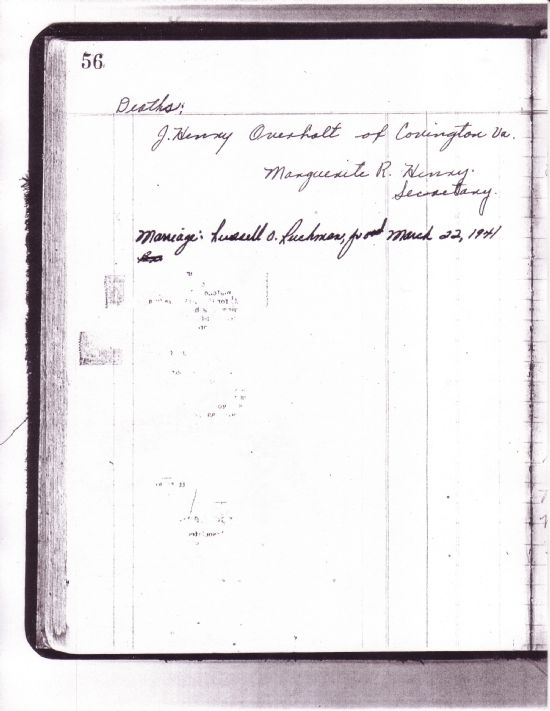 56
Deaths:
J. Henry Overholt of Covington Va.
Marguerite R. Henry.
Secretary.
Marriage: Russell O. Ruchman, jr and March 22, 1941